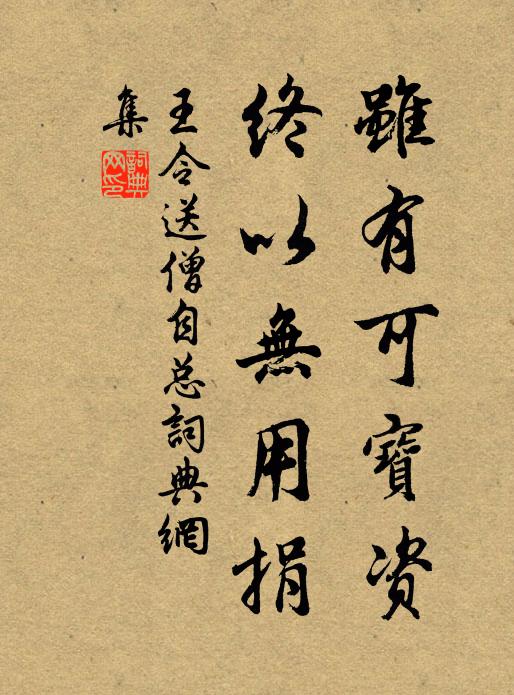 雖有可寶资
終以無用捐
王令送僧自总詞典網
集
詞典
网印